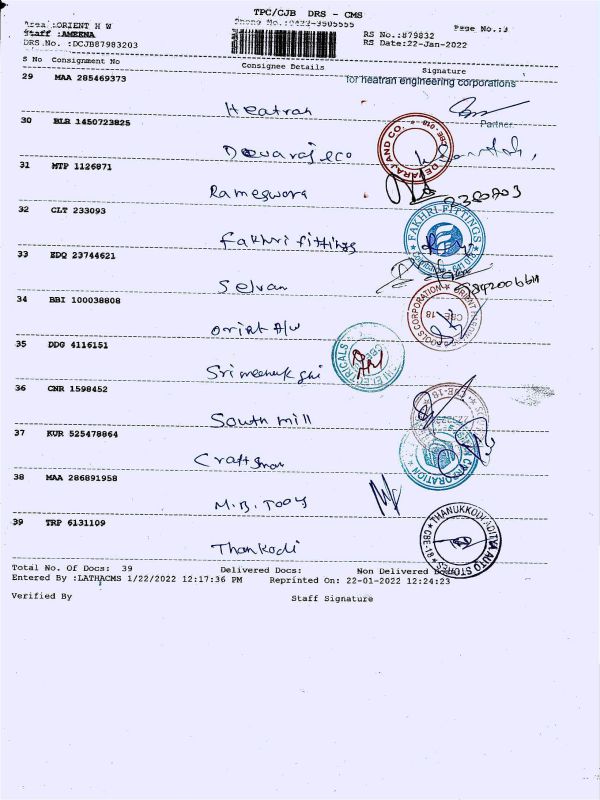 TPC/CJB DRS - CMS
Area :ORIENT H W
Phone No.:0422-3905555
Page No.:3
Staff :AMEENA
RS No.:879832
DRS.No. :DCJB87983203
RS Date:22-Jan-2022
S No Consignment No Consignee Details Signature
29 MAA 285469373
for heatran engineering corporations
Heatran
Partner.
30 BLR 1450723825
Devaraj &co
DEVARAJ AND CO.
31 MTP 1126871
Rameswora
32 CLT 233093
Fakhri fittings
FAKHRI-FITTINGS
33 EDQ 23744621
Selvan
34 BBI 100038808
Orient H/W
TOOLS CORPORATION
CBE 18
35 DDG 4116151
Srimeenakshi
36 CNR 1598452
South mill
CBE-18
37 KUR 525478864
Craftsman
CORPORATION
38 MAA 286891958
M.B. Tools
39 TRP 6131109
Thankodi
THANUKKODI ADITYA AUTO STORES
CBE-1
Total No. Of Docs: 39 Delivered Docs: Non Delivered Docs:
Entered By :LATHACMS 1/22/2022 12:17:36 PM Reprinted On: 22-01-2022 12:24:23
Verified By Staff Signature